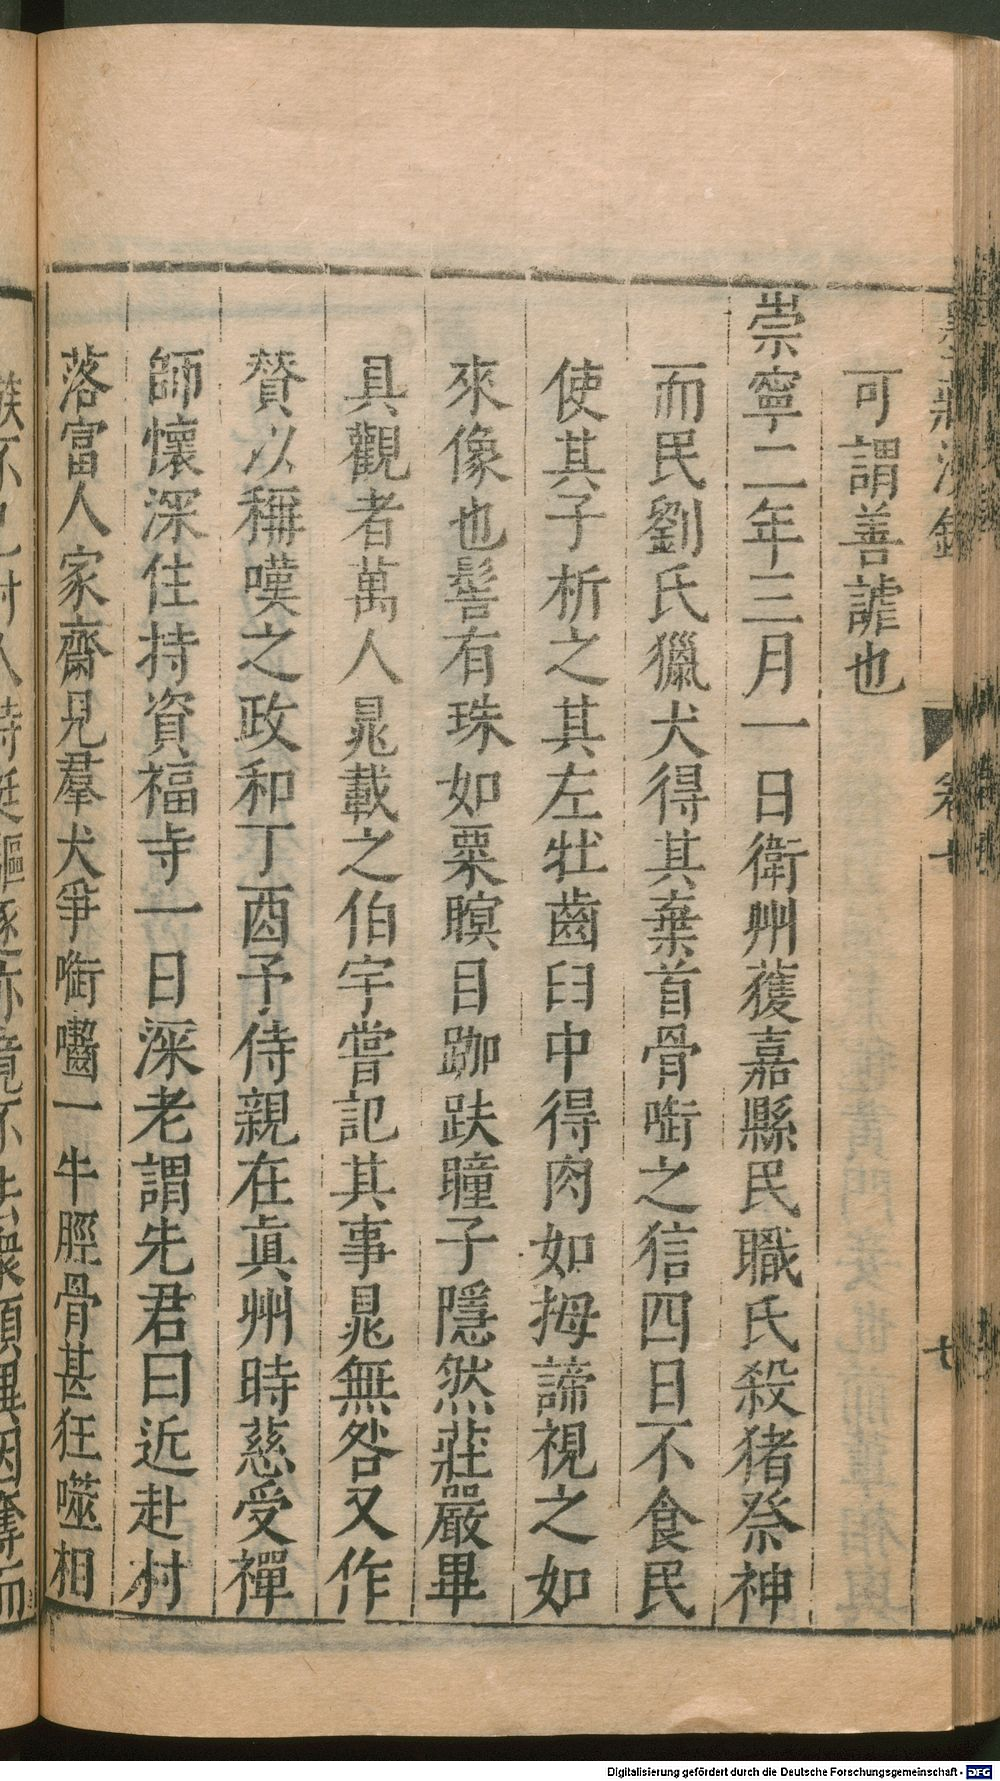 可謂善謔也
崇寧二年三月一日衛州獲嘉縣民職氏殺猪祭神
而民劉氏獵犬得其棄首骨㗸之信四日不食民
使其子析之其左牡齒臼中得肉如拇諦視之如
來像也髻有珠如粟瞑目跏趺瞳子隱然莊嚴畢
具觀者萬人晁載之伯宇嘗記其事晁無咎又作
贊以稱嘆之政和丁酉予侍親在真州時慈受禪
師懷深住持資福寺一日深老謂先君曰近赴村
落富人家齋見羣犬爭㗸嚙一牛脛骨甚狂噬相
卷十
七
Digitalisierung gefördert durch die Deutsche Forschungsgemeinschaft - DFG